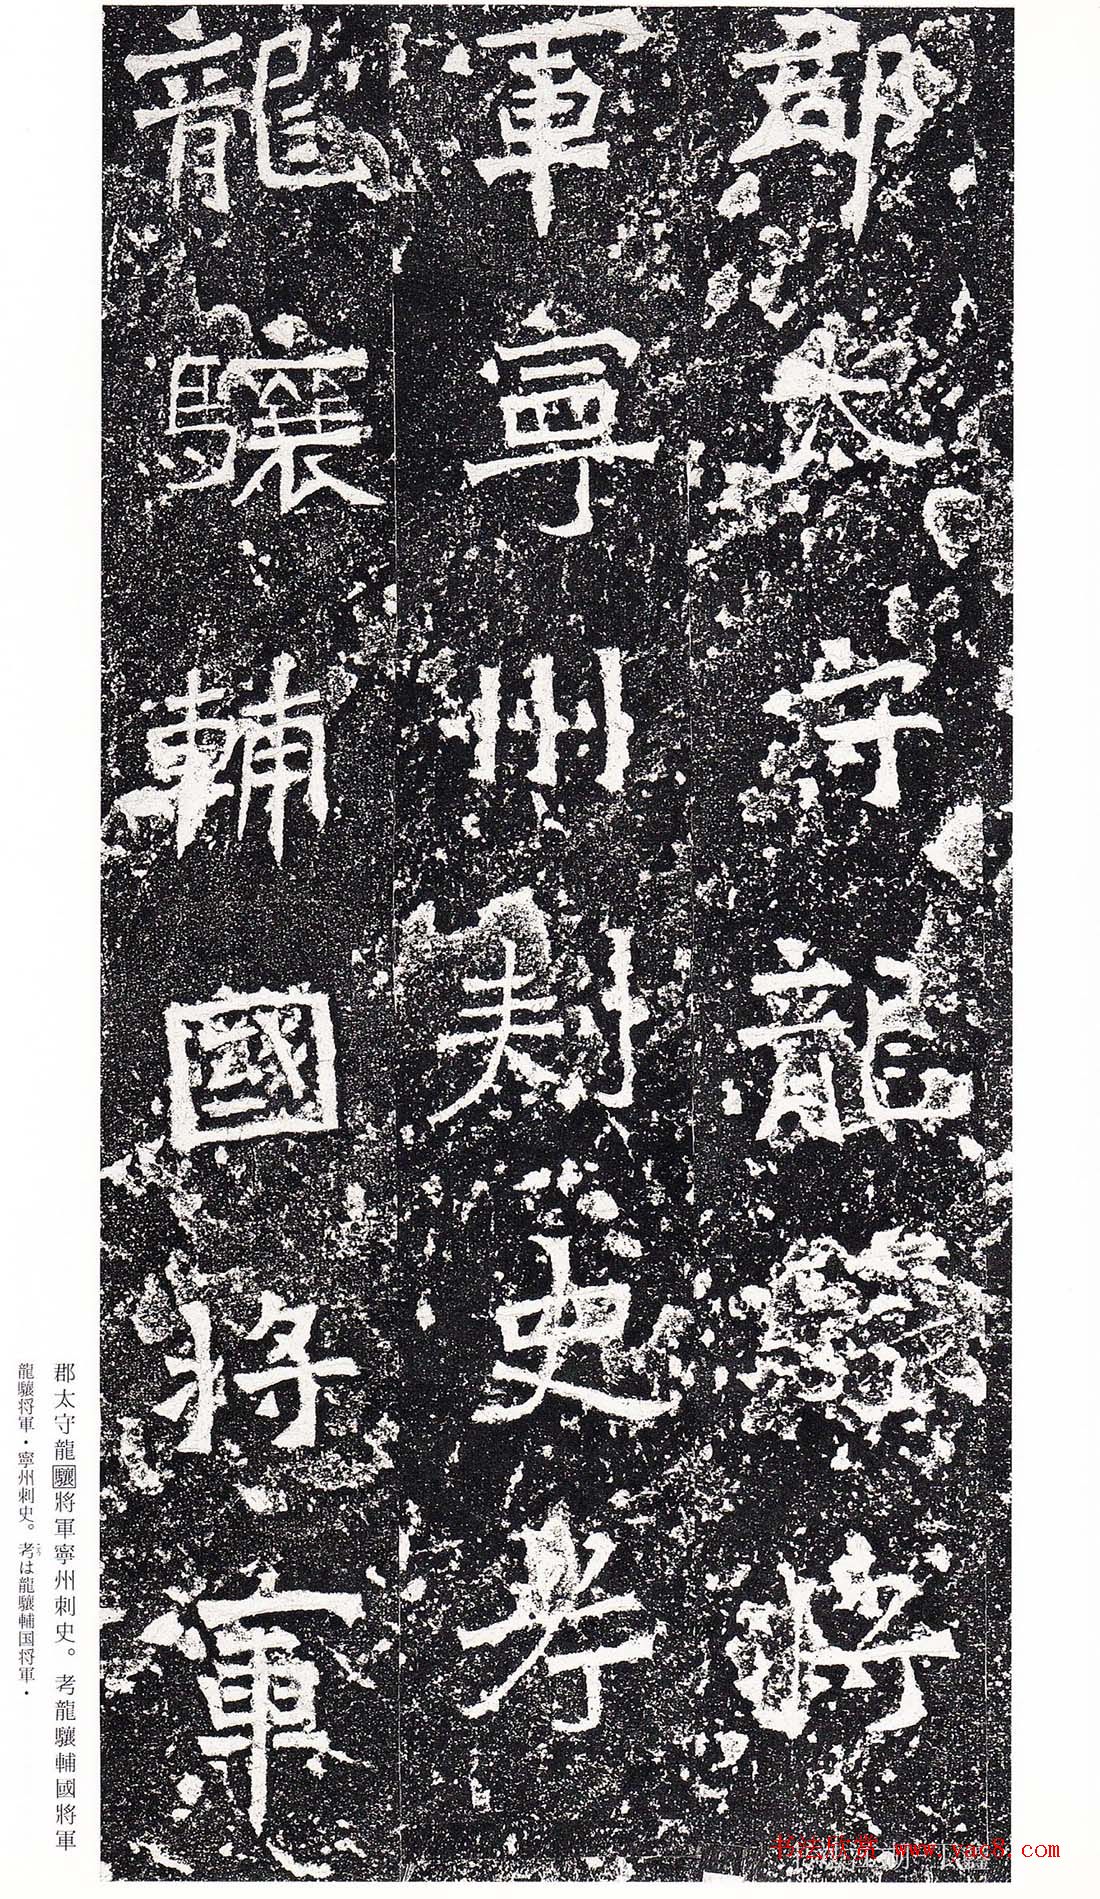 郡太守龍驤將
軍寧州刺史考
龍驤輔國將軍
郡太守龍驤將軍寧州刺史。考龍驤輔國將軍
龍驤将軍・寧州刺史。考は龍驤輔国将軍・
书法欣赏 www.yac8.com